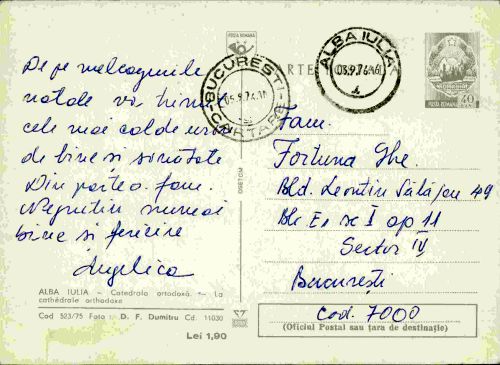 POSTA ROMANA
De pe meleagurile
natale vă trimit
cele mai calde urări
de bine și sănătate
Din partea fam.
Negrutiu numai
bine și fericire
Angelica
ALBA IULIA - Catedrala ortodoxă. - La
cathédrale orthodoxe
Cod 523/75 Foto : D. F. Dumitru Cd. 11030
Lei 1,90
BUCUREȘTI
05.9.76.
CARTARE
ALBA IULIA
03.9.76
CARTE POȘTALĂ
POSTA ROMANA 40
Fam.
Fortuna Ghe.
Bld. Leontin Sălăjan 49
Blc E1 sc I ap 11
Sector IV
București
Cod. 7000
(Oficiul Postal sau țara de destinație)